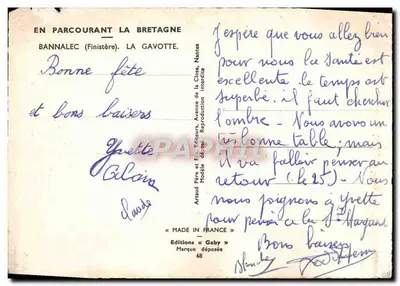 EN PARCOURANT LA BRETAGNE
BANNALEC (Finistère). LA GAVOTTE.
Bonne fête
et bons baisers
Yvette
Alain
Claude
Artaud Père et Fils Editeurs, Avenue de la Close, Nantes
Modèle déposé Reproduction interdite
« MADE IN FRANCE »
Editions « Gaby »
Marque déposée
68
J'espère que vous allez bien
pour nous la santé est
excellente le temps est
superbe. il faut chercher
l'ombre - Nous avons un
très bonne table, mais
il va falloir penser au
retour (le 25) - Nous
nous joignons à Yvette
pour penser à la Ste Margaret
Bons baisers